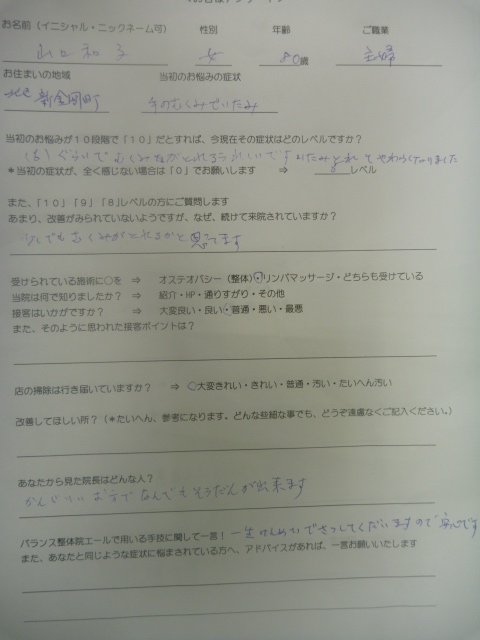 お名前（イニシャル・ニックネーム可） 性別 年齢 ご職業
山口和子 女 80歳 主婦
お住まいの地域 当初のお悩みの症状
新金岡町 手のむくみぜいたみ
当初のお悩みが１０段階で「１０」だとすれば、今現在その症状はどのレベルですか？
(8)ぐらいで むくみ
＊当初の症状が、全く感じない場合は「０」でお願いします ⇒ 8 レベル
また、「１０」「９」「８」レベルの方にご質問します
あまり、改善がみられていないようですが、なぜ、続けて来院されていますか？
少しでもむくみがとれるかと思ってます
受けられている施術に○を ⇒ オステオパシー（整体）・リンパマッサージ・どちらも受けている
当院は何で知りましたか？ ⇒ 紹介・HP・通りすがり・その他
接客はいかがですか？ ⇒ 大変良い・良い・普通・悪い・最悪
また、そのように思われた接客ポイントは？
店の掃除は行き届いていますか？ ⇒ 大変きれい・きれい・普通・汚い・たいへん汚い
改善してほしい所？（＊たいへん、参考になります。どんな些細な事でも、どうぞ遠慮なくご記入ください。）
あなたから見た院長はどんな人？
かんじいい お方で なんでも そうだんが出来ます
バランス整体院エールで用いる手技に関して一言！ 一生けんめいでさっしてくだいますので 安心です
また、あなたと同じような症状に悩まされている方へ、アドバイスがあれば、一言お願いいたします